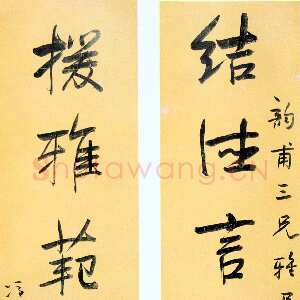 韵甫三兄雅
结佳言
援雅范
冯
Shufawang.CN